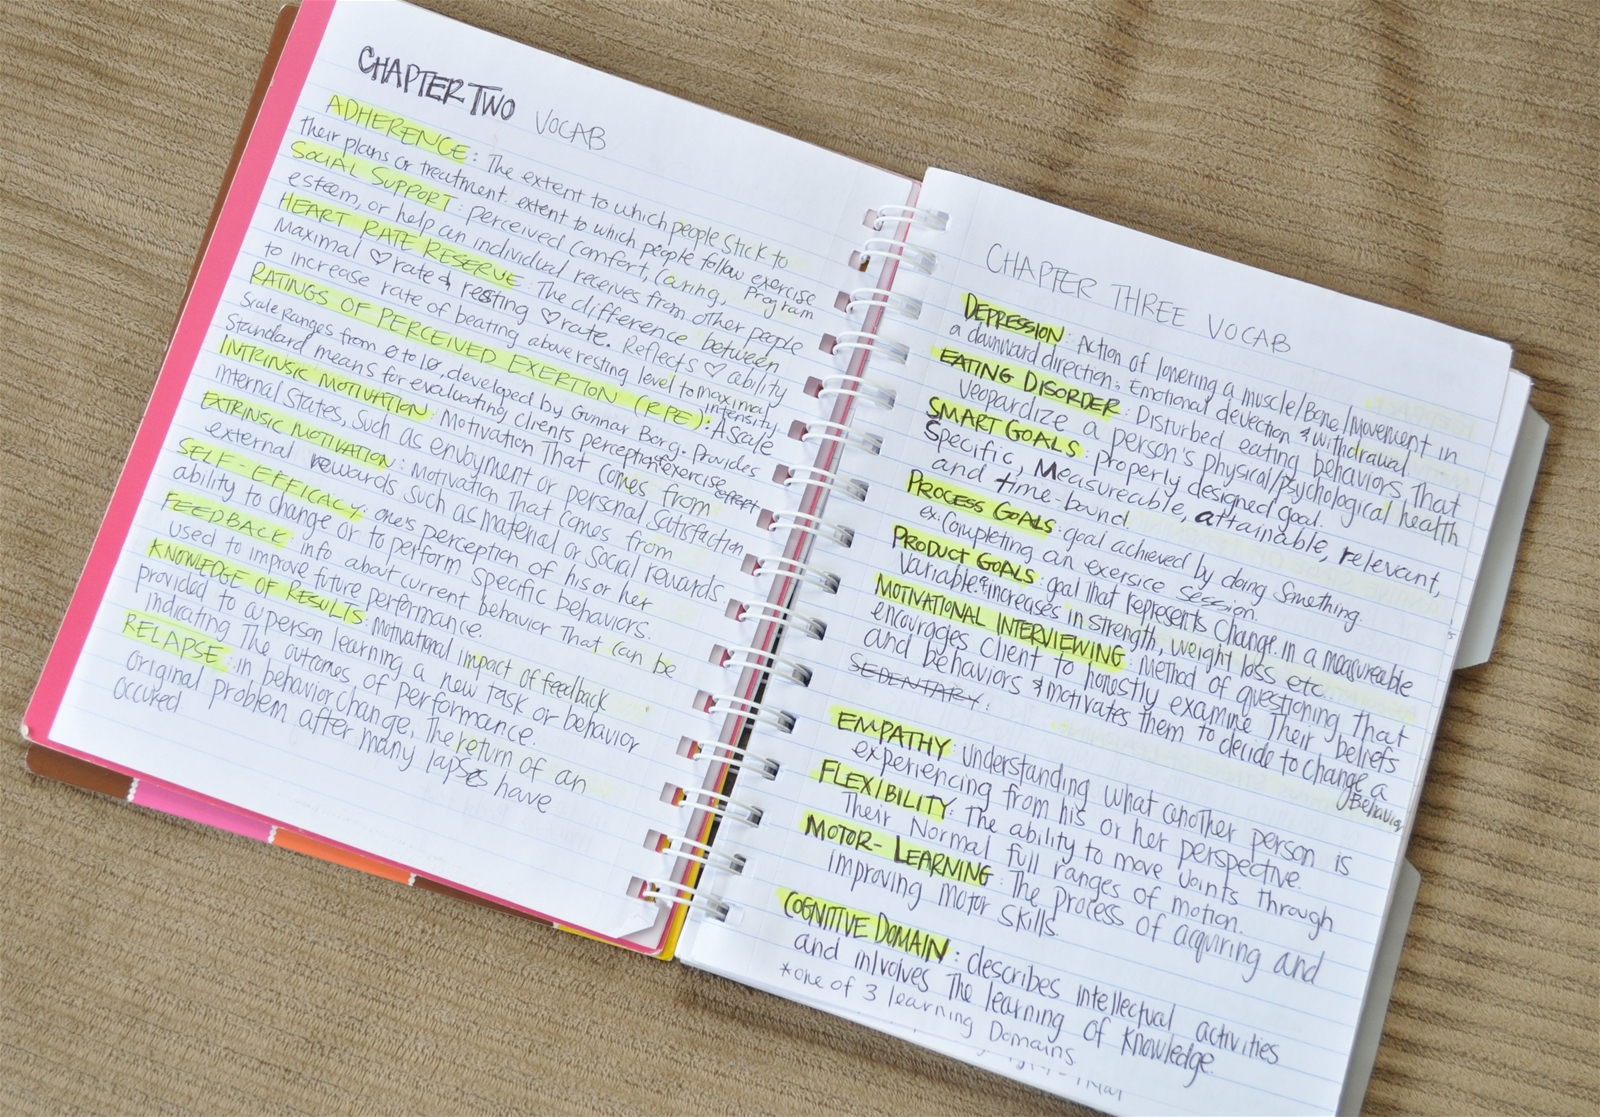 CHAPTER TWO VOCAB
ADHERENCE: The extent to which people stick to
their plans or treatment. extent to which people follow exercise
program
SOCIAL SUPPORT: perceived comfort, caring,
esteem, or help an individual receives from other people
HEART RATE RESERVE: The difference between
Maximal ♡rate & resting ♡rate. Reflects ♡ ability
to increase rate of beating above resting level to maximal
intensity
RATINGS OF PERCEIVED EXERTION (RPE): A scale
Scale Ranges from 0 to 10, developed by Gunnar Borg. Provides
Standard means for evaluating clients perception of exercise effort
INTRINSIC MOTIVATION: Motivation That comes from
internal States, such as enjoyment or personal satisfaction
EXTRINSIC MOTIVATION: Motivation That comes from
external rewards such as material or social rewards
SELF-EFFICACY: one's perception of his or her
ability to change or to perform specific behaviors.
FEEDBACK: info about current behavior That can be
used to improve future performance.
KNOWLEDGE OF RESULTS: motivational impact of feedback
provided to a person learning a new task or behavior
indicating The outcomes of performance.
RELAPSE: in behavior change, The return of an
original problem after many lapses have
occured.
CHAPTER THREE VOCAB
DEPRESSION: Action of lowering a muscle/Bone/Movement in
a downward direction. Emotional devection & withdrawal
EATING DISORDER: Disturbed eating behaviors That
jeopardize a person's physical/psychological health
SMART GOALS: properly designed goal.
Specific, Measureable, attainable, relevant,
and time-bound
PROCESS GOALS: goal achieved by doing Something.
ex: Completing an exersice session.
PRODUCT GOALS: goal that represents change in a measureable
Variable & increases in strength, weight loss etc.
MOTIVATIONAL INTERVIEWING: method of questioning that
encourages client to honestly examine Their beliefs
and behaviors & motivates them to decide to change a
Behavior
SEDENTARY:
EMPATHY: understanding what another person is
experiencing from his or her perspective.
FLEXIBILITY: The ability to move joints through
Their Normal full ranges of motion.
MOTOR-LEARNING: The process of acquiring and
improving motor skills.
COGNITIVE DOMAIN: describes intellectual activities
and inlvolves The learning of Knowledge.
*one of 3 learning Domains